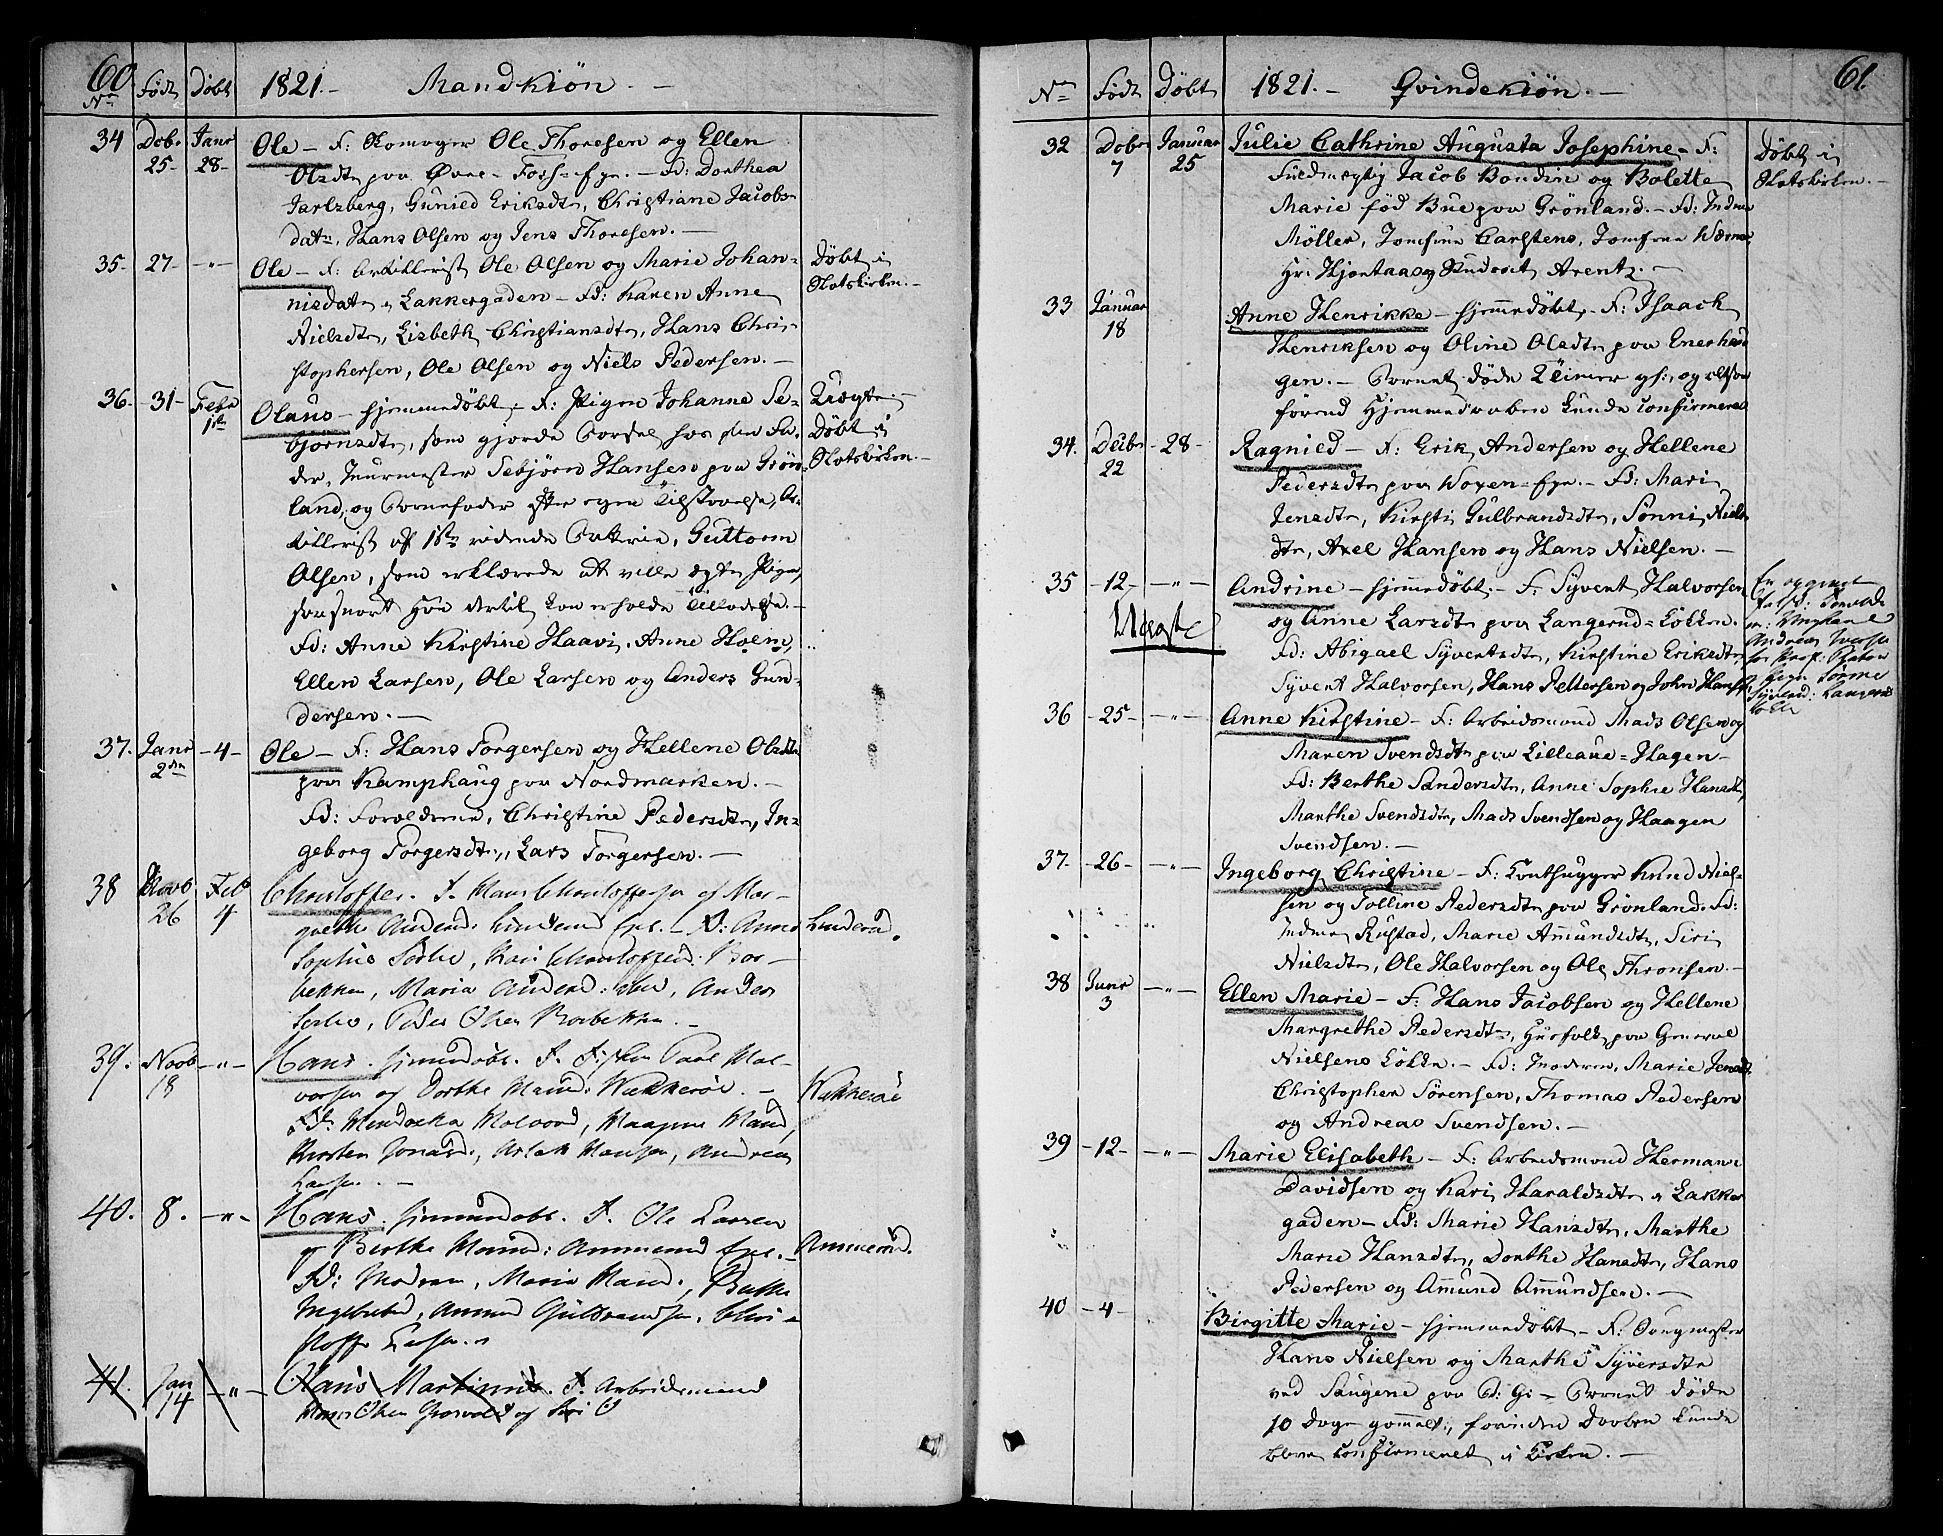 60.
No Född Döbt 1821.- Mandkiön.-
34 Dobr. 25- Janr 28- Ole - F: Skomager Ole Thoresen og Ellen
Olsdtr paa Övre-Foss-Eje. - Fd: Dorthea
Jarlzberg, Gunied Eriksdtr, Christiane Jacobs
datr, Hans Olsen og Jens Thoresen.-
35- 27- -"- Ole - F: Artillerist Ole Olsen og Marie Johan-
nisdatr i Lakkergaden - Fd: Karen Anne
Nielsdtr, Lisbeth Christiansdtr, Hans Chri-
stophersen, Ole Olsen og Niels Pedersen.-
Döbt i
Slotskirken.-
36- 31- Febr 1ste Olaus - hjemmedöbt.- F: Pigen Johanne Se-
björnsdtr, som gjorde Barsel hos sin Fa-
der, Muurmester Sebjörn Hansen paa Grön-
land, og Barnefader efter egen Tilstaaelse, Ar-
tillerist af 1ste ridende Batterie, Guttorm
Olsen, som erklærede at ville ægte Pigen,
saasnart han dertil kan erholde Tilladelse.-
Fd: Anne Kirstine Haavi, Anne Holm,
Ellen Larsen, Ole Larsen og Anders Gun-
dersen.-
Uægte.-
Döbt i
Slotskirken.-
37. Janr 2den -4- Ole - F: Hans Torgersen og Hellene Olsdtr
paa Kamphaug paa Nordmarken.-
Fd: Forældrene, Christine Pedersdtr, In-
geborg Torgersdtr, Lars Torgersen.-
38 Novb 26 Feb 4 Christoffer. F. Hans Christoffersen og Mar-
grethe Andersd: Linderud Eje. - Fd: Anne
Sophie Sörlie, Kari Christoffersd: Bor-
bekken, Maria Andersd:, Anders
Sörlie, Peder Olsen Borbekken.-
Linderud.
39. Novb 18 -"- Hans. hjemmedöbt. F. Paul Hal-
vorsen og Dorthe Hansd: Wækkeröe.-
Hansd,
Kirsten Jonasd:, Aslak Hansen, Andreas
Larsen.-
Wækkeröe
40. 8. -"- Hans. hjemmedöbt. F. Ole Larsen
og Berthe Hansd: Ammerud Eje.-
Fd: Modren, Maria Hansd:, Berthe
Ingebretsd, Amund Guldbrandsen, Chri-
stoffer Larsen.
Ammerud.
41. Jan 14 -"- Hans Martinus. F. Arbeidsmand
Hans Olsen og Siri O
61.
No Född Döbt 1821.- Qvindekiön.-
32 Dobr 7 Januar 25 Julie Cathrine Augusta Josephine - F:
Fuldmægtig Jacob Bondin og Bolette
Marie föd Bue paa Grönland.- Fd: Mdme
Möller, Jomfrue Carstens, Jomfrue Werner,
Hr. Hjortaas og Student Arentz.-
Döbt i
Slotskirken.-
33 Januar 18 Anne Henrikke - hjemmedöbt.- F: Isaach
Henriksen og Oline Olsdtr paa Enerhau
gen.- Barnet döde 2 Timer gl:, og altsaa
förend Hjemmedaaben kunde confirmeres
34. Decbr 22 -28- Ragnied - F: Erik Andersen og Hellene
Pedersdtr paa Woxen-Eje.- Fd: Mari
Jensdtr, Kirsti Gulbrandsdtr, Sönni Niels
dtr, Axel Hansen og Hans Nielsen.-
35 -12- -"- Andrine - hjemmedöbt.- F: Syvert Halvorsen
og Anne Larsdtr paa Langerud-Lökken.
Fd: Abigael Syvertsdtr, Kirstine Eriksdtr,
Syvert Halvorsen, Hans Pettersen og John Hansen
Uægte
36 -25- -"- Anne Kirstine - F: Arbeidsmand Mads Olsen og
Maren Svendsdtr paa Lilleaue-Hagen-
Fd: Berthe Sandersdtr, Anne Sophie Hansdtr,
Marthe Svendsdtr, Mads Svendsen og Haagen
Svendsen.-
37- -26- -"- Ingeborg Christine - F: Knud Niel-
sen ogOlline Pedersdtr paa Grönland. Fd:
Mdme Rustad, Marie Amundsdtr, Siri
Nielsdtr, Ole Halvorsen og Ole Thronsen.-
38 Janr 3 -"- Ellen Marie - F: Hans Jacobsen og Hellene
Margrethe Pedersdtr, Huusfolk paa General
Nielsens Lökke.- Fd: Moderen, Marie Jensdtr
Christopher Sörensen, Thomas Pedersen
og Andreas Svendsen.-
39 -12- -"- Marie Elisabeth - F: Arbeidsmand Herman
Davidsen og Kari Haraldsdtr i Lakker
gaden - Fd: Marie Hansdtr, Marthe
Marie Hansdtr, Dorthe Hansdtr, Hans
Pedersen og Amund Amundsen.-
40 -4- Birgitte Marie - hjemmedöbt - F:
Hans Nielsen og Marthe Syversdtr
ved Saugene paa - Barnet döde
10 Dage gammelt, forinden Daaben kunde
blive confirmeret i Kirken.-